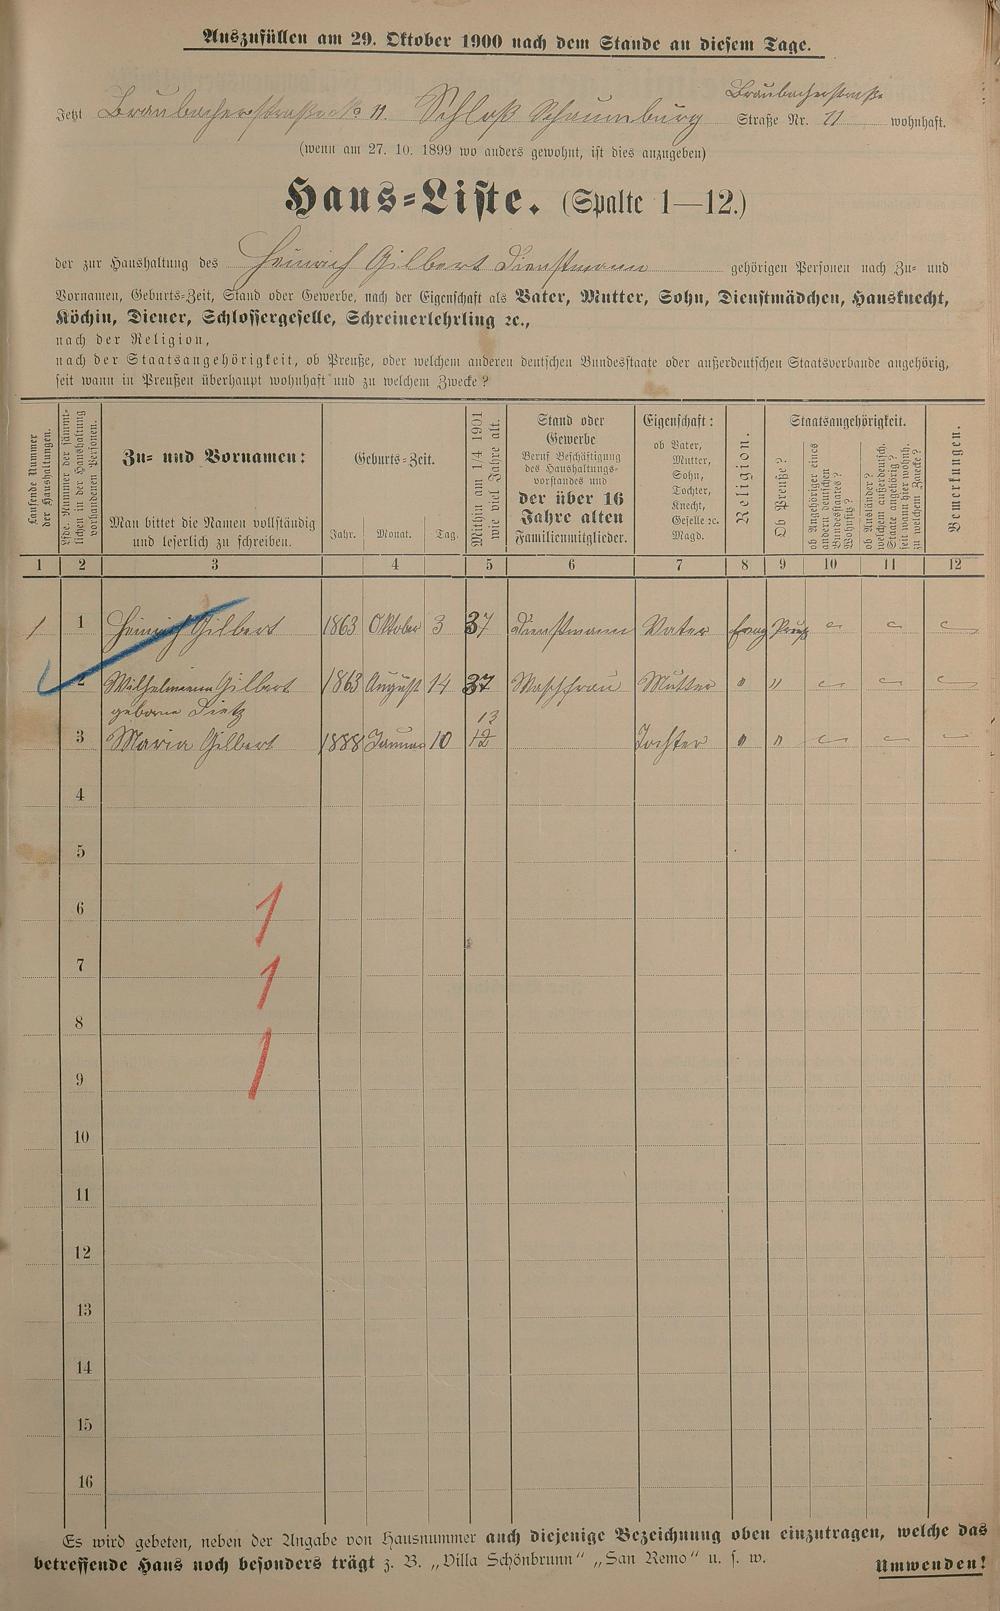 Auszufüllen am 29. Oktober 1900 nach dem Stande an diesem Tage.
Braubacherstraße
Jetzt Braubacherstraße 11. Schloß Schaumburg Straße Nr. 11 wohnhaft.
(wenn am 27. 10. 1899 wo anders gewohnt, ist dies anzugeben)
Haus-Liste. (Spalte 1—12.)
der zur Haushaltung des Heinrich Gilbert Dienstmann gehörigen Personen nach Zu- und
Vornamen, Geburts-Zeit, Stand oder Gewerbe, nach der Eigenschaft als Vater, Mutter, Sohn, Dienstmädchen, Hausknecht,
Köchin, Diener, Schlossergeselle, Schreinerlehrling ꝛc.,
nach der Religion,
nach der Staatsangehörigkeit, ob Preuße, oder welchem anderen deutschen Bundesstaate oder außerdeutschen Staatsverbande angehörig,
seit wann in Preußen überhaupt wohnhaft und zu welchem Zwecke?
Laufende Nummer der Haushaltungen.
Lfde. Nummer der sämmtlichen in der Haushaltung vorhandenen Personen.
Zu- und Vornamen:
Man bittet die Namen vollständig
und leserlich zu schreiben.
Geburts-Zeit.
Jahr. Monat. Tag.
Mithin am 1/4 1901 wie viel Jahre alt.
Stand oder
Gewerbe
Beruf Beschäftigung
des Haushaltungs-
vorstandes und
der über 16
Jahre alten
Familienmitglieder.
Eigenschaft:
ob Vater,
Mutter,
Sohn,
Tochter,
Knecht,
Geselle ꝛc.
Magd.
Religion.
Staatsangehörigkeit.
Ob Preuße?
ob Angehöriger eines andern deutschen Bundesstaates? Wohnsitz?
ob Ausländer? welchem außerdeutsch. Staate angehörig? seit wann hier wohnh. zu welchem Zwecke?
Bemerkungen.
1 2 3 4 5 6 7 8 9 10 11 12
1 1 Heinrich Gilbert 1863 Oktober 3 37 Dienstmann Vater Evang Preuß
2 Wilhelmine Gilbert 1863 August 14 37 Waschfrau Mutter " "
geborne Dietz
13
3 Maria Gilbert 1888 Januar 10 12 Tochter " "
4
5
6
1
7
1
8
1
9
10
11
12
13
14
15
16
Es wird gebeten, neben der Angabe von Hausnummer auch diejenige Bezeichnung oben einzutragen, welche das
betreffende Haus noch besonders trägt z. B. „Villa Schönbrunn“ „San Remo“ u. s. w.
Umwenden!